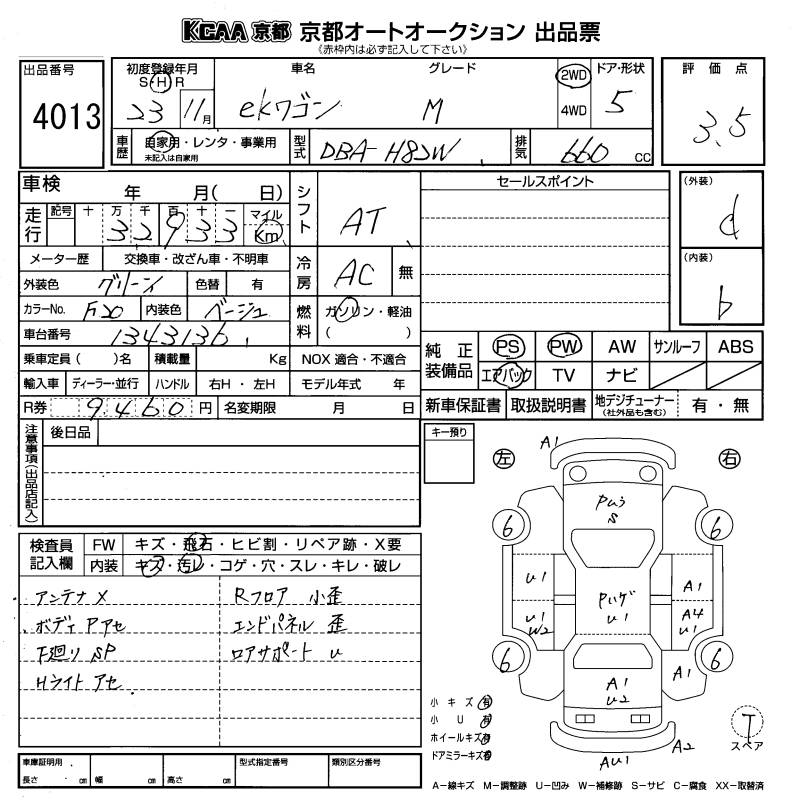 KCAA 京都 京都オートオークション 出品票
《赤枠内は必ず記入して下さい》
出品番号
4013
初度登録年月
S・H・R
23 11月
車名
ekワゴン
グレード
M
2WD
4WD
ドア・形状
5
評価点
3.5
車歴
自家用・レンタ・事業用
未記入は自家用
型式
DBA-H82W
排気
660 cc
車検 年 月( 日)
走行
記号 十 万 千 百 十 一 マイル
32933 Km
メーター歴 交換車・改ざん車・不明車
外装色 グリーン 色替 有
カラーNo. F20 内装色 ベージュ
車台番号 1343136
乗車定員( )名 積載量 Kg NOX 適合・不適合
輸入車 ディーラー・並行 ハンドル 右H・左H モデル年式 年
R券 9,460 円 名変期限 月 日
シフト AT
冷房 AC 無
燃料 ガソリン・軽油
( )
セールスポイント
(外装)
d
(内装)
b
純正装備品
PS PW AW サンルーフ ABS
エアバック TV ナビ
新車保証書 取扱説明書 地デジチューナー
(社外品も含む)
有・無
注意事項(出品店記入)
後日品
キー預り
検査員記入欄
FW キズ・飛石・ヒビ割・リペア跡・X要
内装 キズ・汚レ・コゲ・穴・スレ・キレ・破レ
アンテナ X
ボディ P アセ
下廻り SP
Hライト アセ
Rフロア 小歪
エンドパネル 歪
ロアサポート U
左
右
A1
S
6
6
U1
U1
W2
U1
A1
A4
U1
6
6
A1
U2
A1
AU1
A2
小キズ 有
小U 有
ホイールキズ 有
ドアミラーキズ 有
T
スペア
車庫証明用
長さ cm 幅 cm 高さ cm
型式指定番号
類別区分番号
A−線キズ M−調整跡 U−凹み W−補修跡 S−サビ C−腐食 XX−取替済